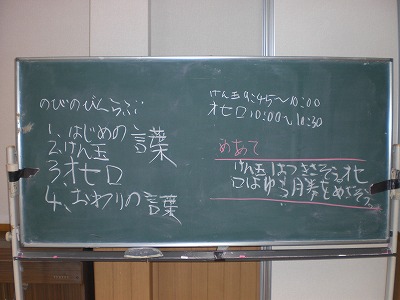 のびのびくらぶ
1、はじめの言葉
2、けん玉
3、オセロ
4、おわりの言葉
けん玉9:45〜10:00
オセロ10:00〜10:30
めあて
けん玉はつきさそう。オセ
ロはゆう月券をめざそう。